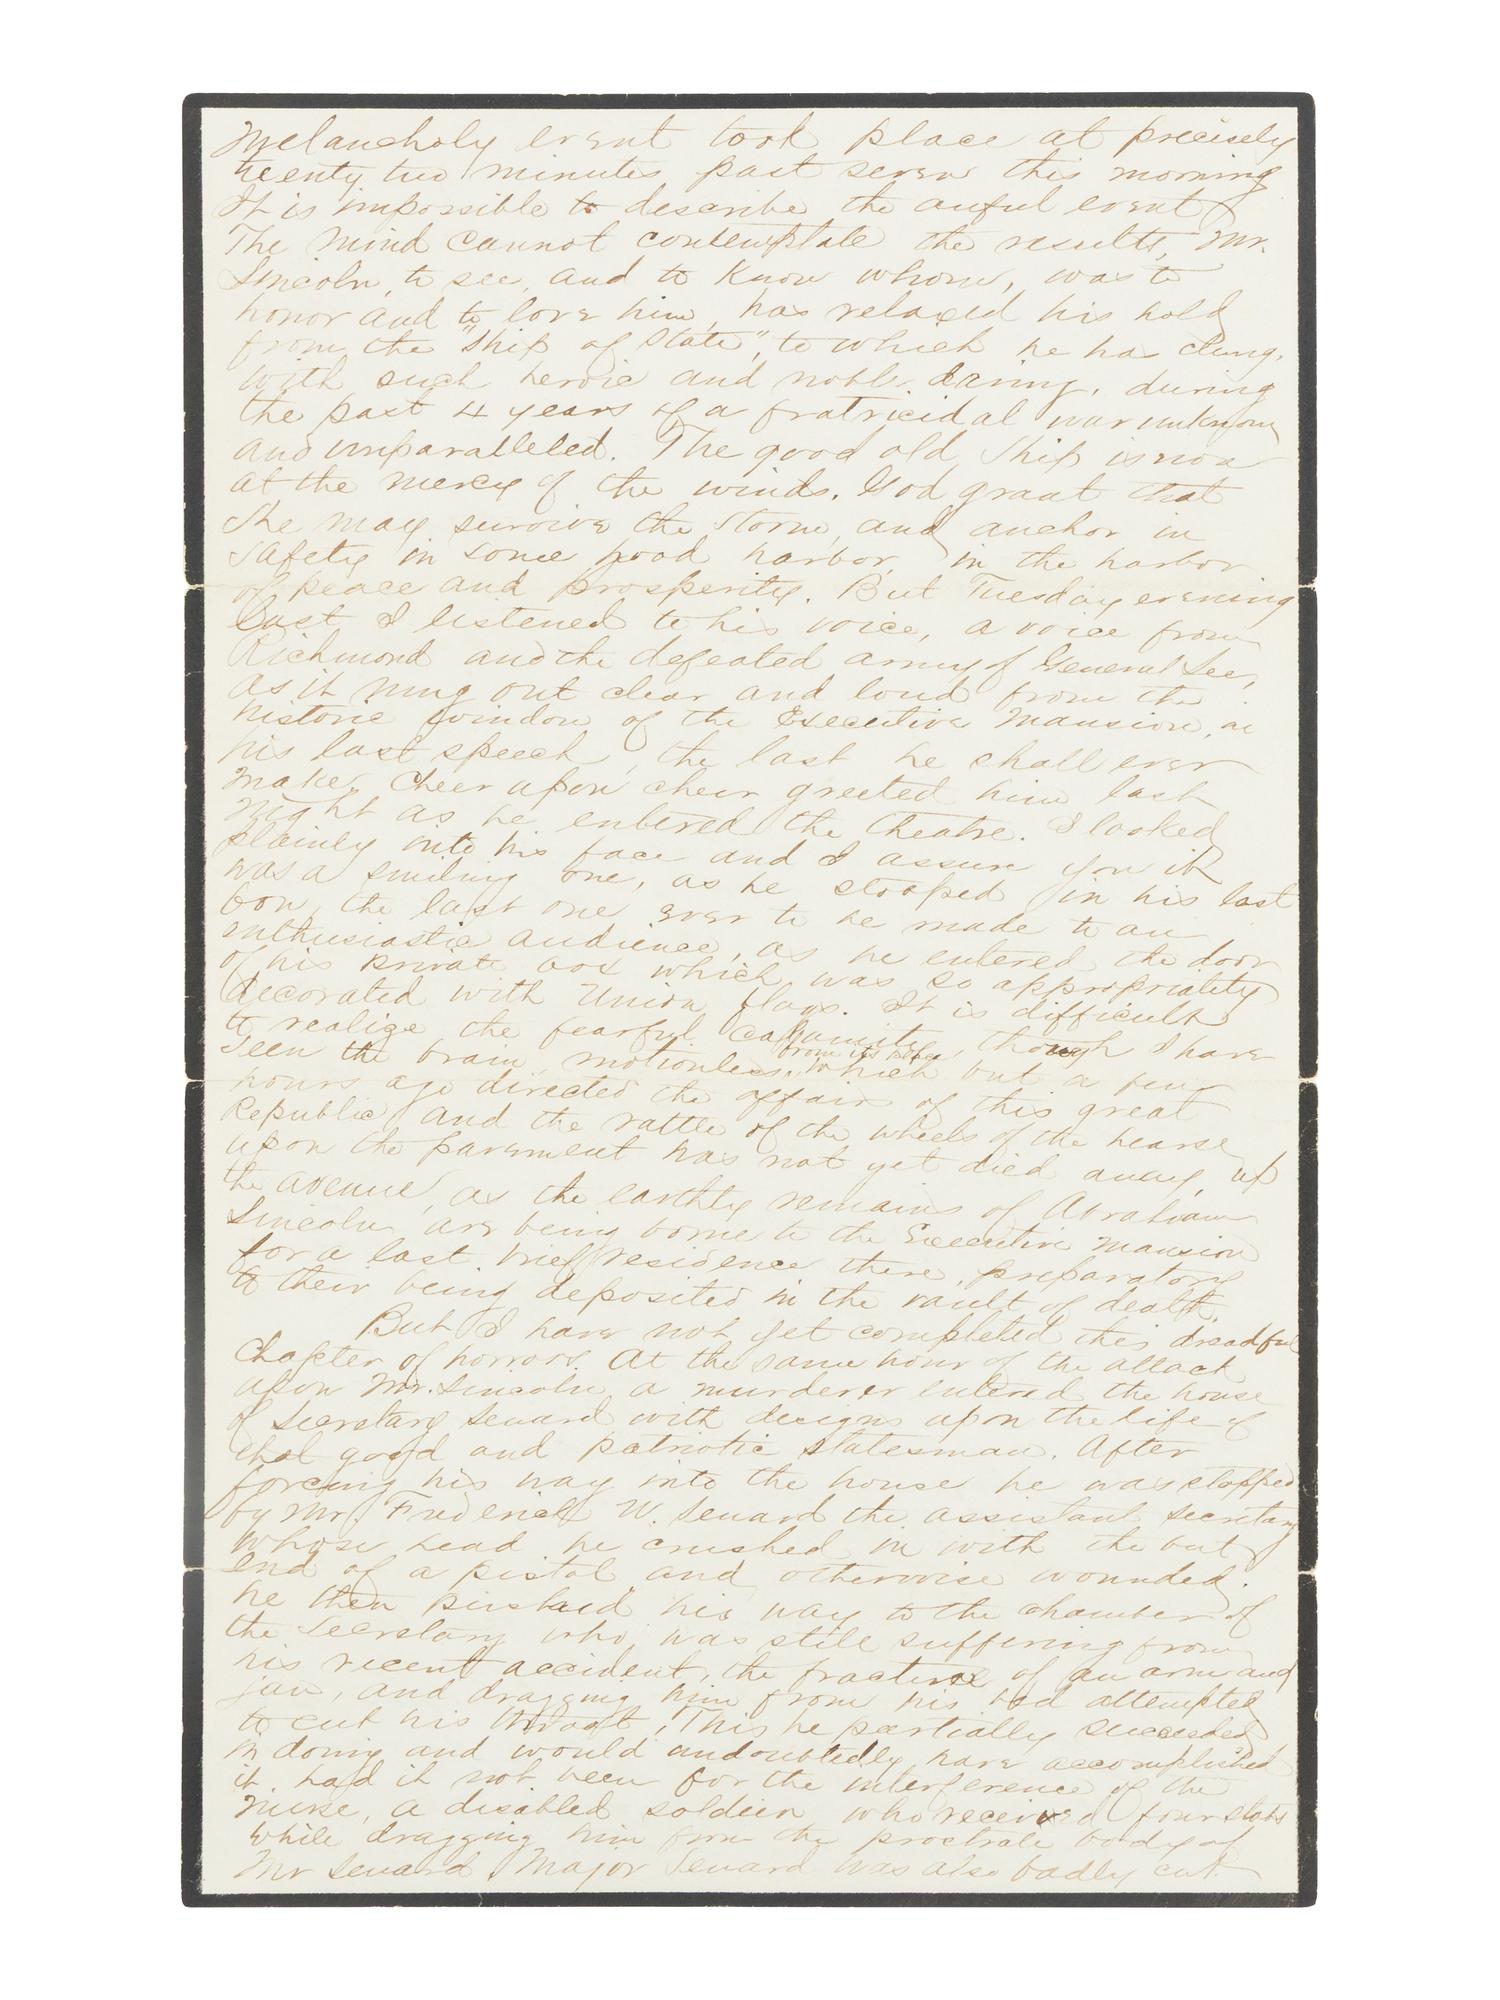 Melancholy event took place at precisely
twenty two minutes past seven this morning
It is impossible to describe the awful event
The mind cannot contemplate the results, Mr.
Lincoln, to see, and to know whom, was to
honor and to love him, has relaxed his hold
from the "Ship of State", to which he has clung,
with such heroic and noble daring, during
the past 4 years of a fratricidal war unknown
and unparalleled. The good old Ship is now
at the mercy of the winds. God grant that
she may survive the storm, and anchor in
safety in some good harbor, in the harbor
of peace and prosperity. But Tuesday evening
last I listened to his voice, a voice from
Richmond and the defeated army of General Lee,
as it rung out clear and loud from the
historic window of the Executive Mansion, in
his last speech, the last he shall ever
make. Cheer upon cheer greeted him last
night as he entered the theatre. I looked
plainly into his face and I assure you it
was a smiling one, as he stooped in his last
bow, the last one ever to be made to an
enthusiastic audience, as he entered the door
of his private box which was so appropriately
decorated with Union flags. It is difficult
to realize the fearful calamity, though I have
seen the brain, motionless, which but a few
hours ago directed the affairs of this great
Republic, and the rattle of the wheels of the hearse
upon the pavement has not yet died away, up
the avenue, as the earthly remains of Abraham
Lincoln are being borne to the Executive Mansion
for a last brief residence there, preparatory
to their being deposited in the vault of death.
But I have not yet completed this dreadful
chapter of horrors. At the same hour of the attack
upon Mr. Lincoln, a murderer entered the house
of Secretary Seward with designs upon the life of
that good and patriotic statesman. After
forcing his way into the house he was stopped
by Mr. Frederick W. Seward the assistant Secretary
whose head he crushed in with the but
end of a pistol and otherwise wounded.
he then pushed his way to the chamber of
the Secretary who was still suffering from
his recent accident, the fracture of an arm and
jaw, and dragging him from his bed attempted
to cut his throat, This he partially succeeded
in doing and would undoubtedly have accomplished
it, had it not been for the interference of the
nurse, a disabled soldier who received four stabs
while dragging him from the prostrate body of
Mr Seward. Major Seward was also badly cut.